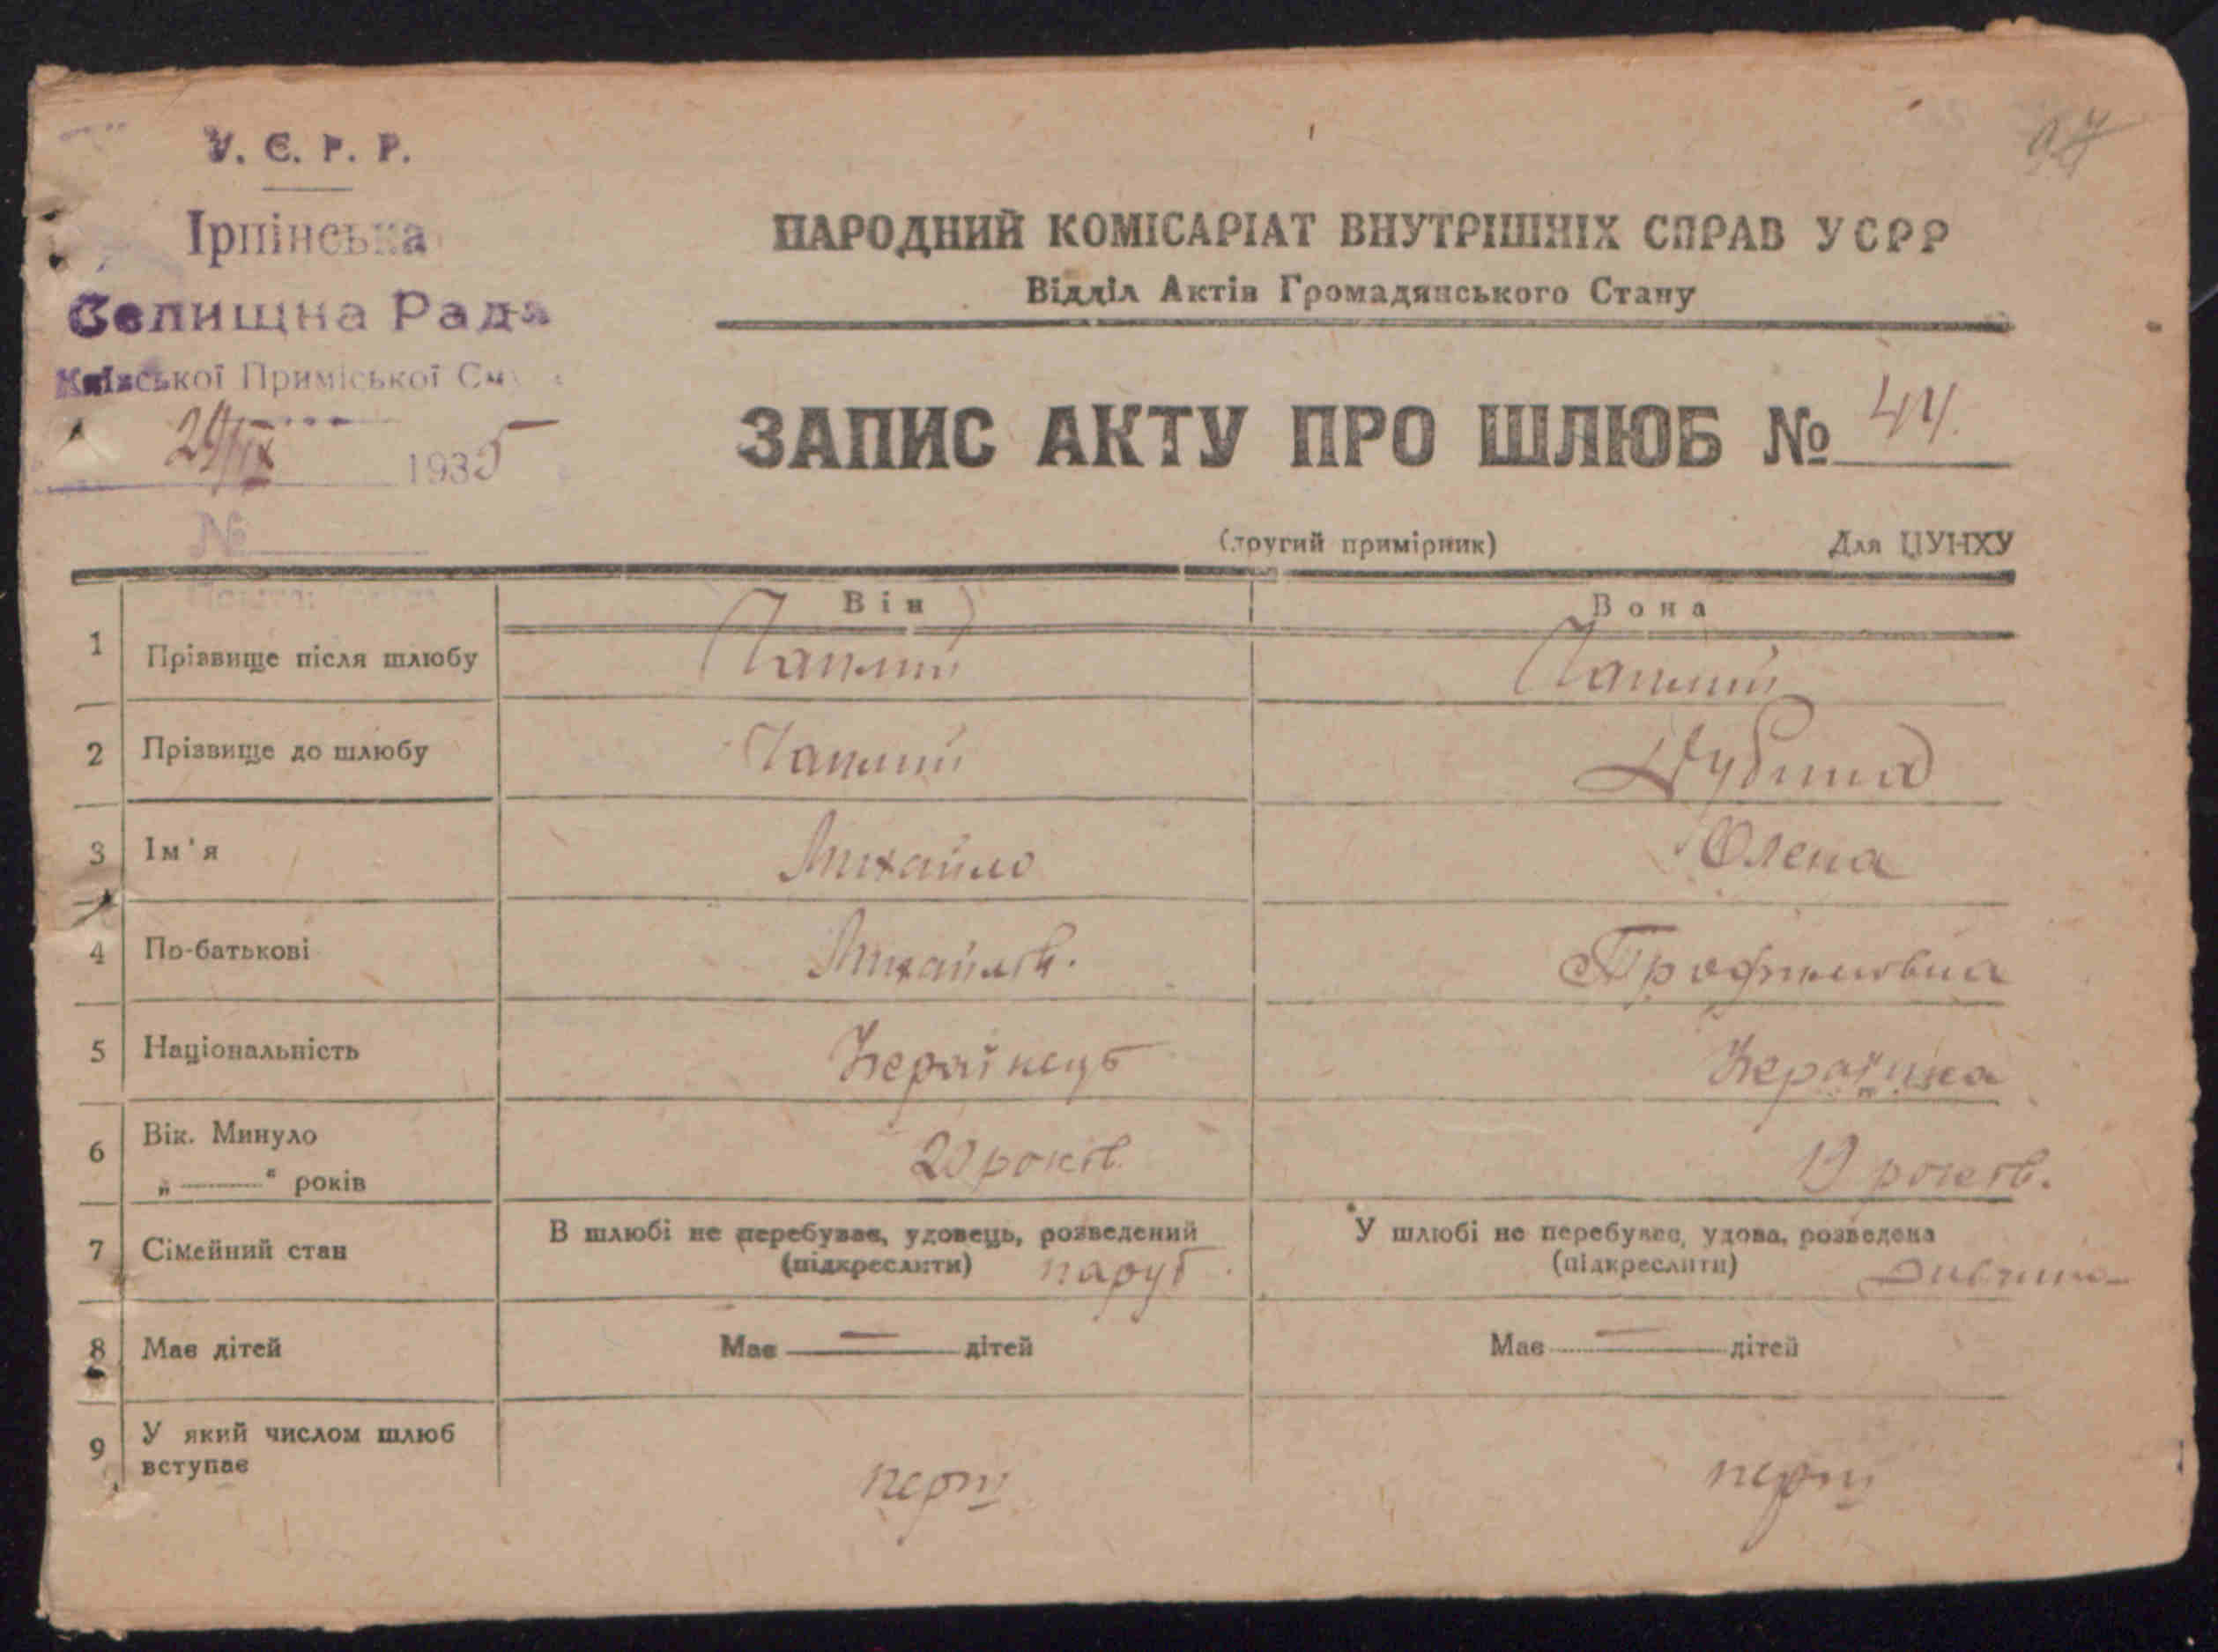 97
У. С. Р. Р.
Ірпінська
Селищна Рада
Київської Приміської См
29/IX 1935
№
НАРОДНИЙ КОМІСАРІАТ ВНУТРІШНІХ СПРАВ УСРР
Відділ Актів Громадянського Стану
ЗАПИС АКТУ ПРО ШЛЮБ № 44.
(другий примірник) Для ЦУНХУ
Він Вона
1 Прізвище після шлюбу
2 Прізвище до шлюбу Дубина
3 Ім'я Михайло Олена
4 По-батькові Михайлов. Трофимовна
5 Національність Українець Українка
6 Вік. Минуло
„ “ років 20 років. 19 років.
7 Сімейний стан В шлюбі не перебував, удовець, розведений У шлюбі не перебуває, удова, розведена
(підкреслити) паруб. (підкреслити) Дивчина
8 Має дітей Має — дітей Має — дітей
9 У який числом шлюб
вступає перш перш